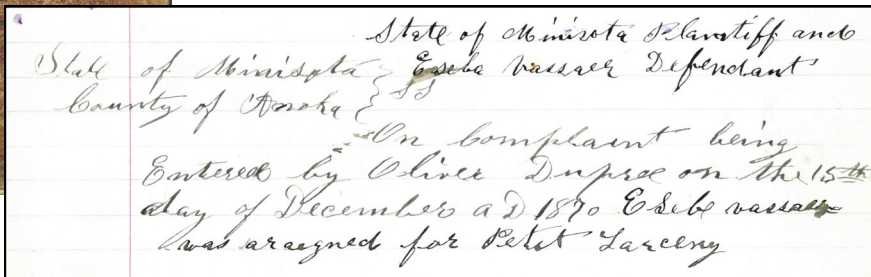 State of Minisota Plantiff and
State of Minisota } Eseba Vassaer Defendant
County of Anoka } SS
On Complaint being
Entered by Oliver Dupree on the 15th
day of December AD 1870 Esebe vassaer
was araegned for Petit Larceny